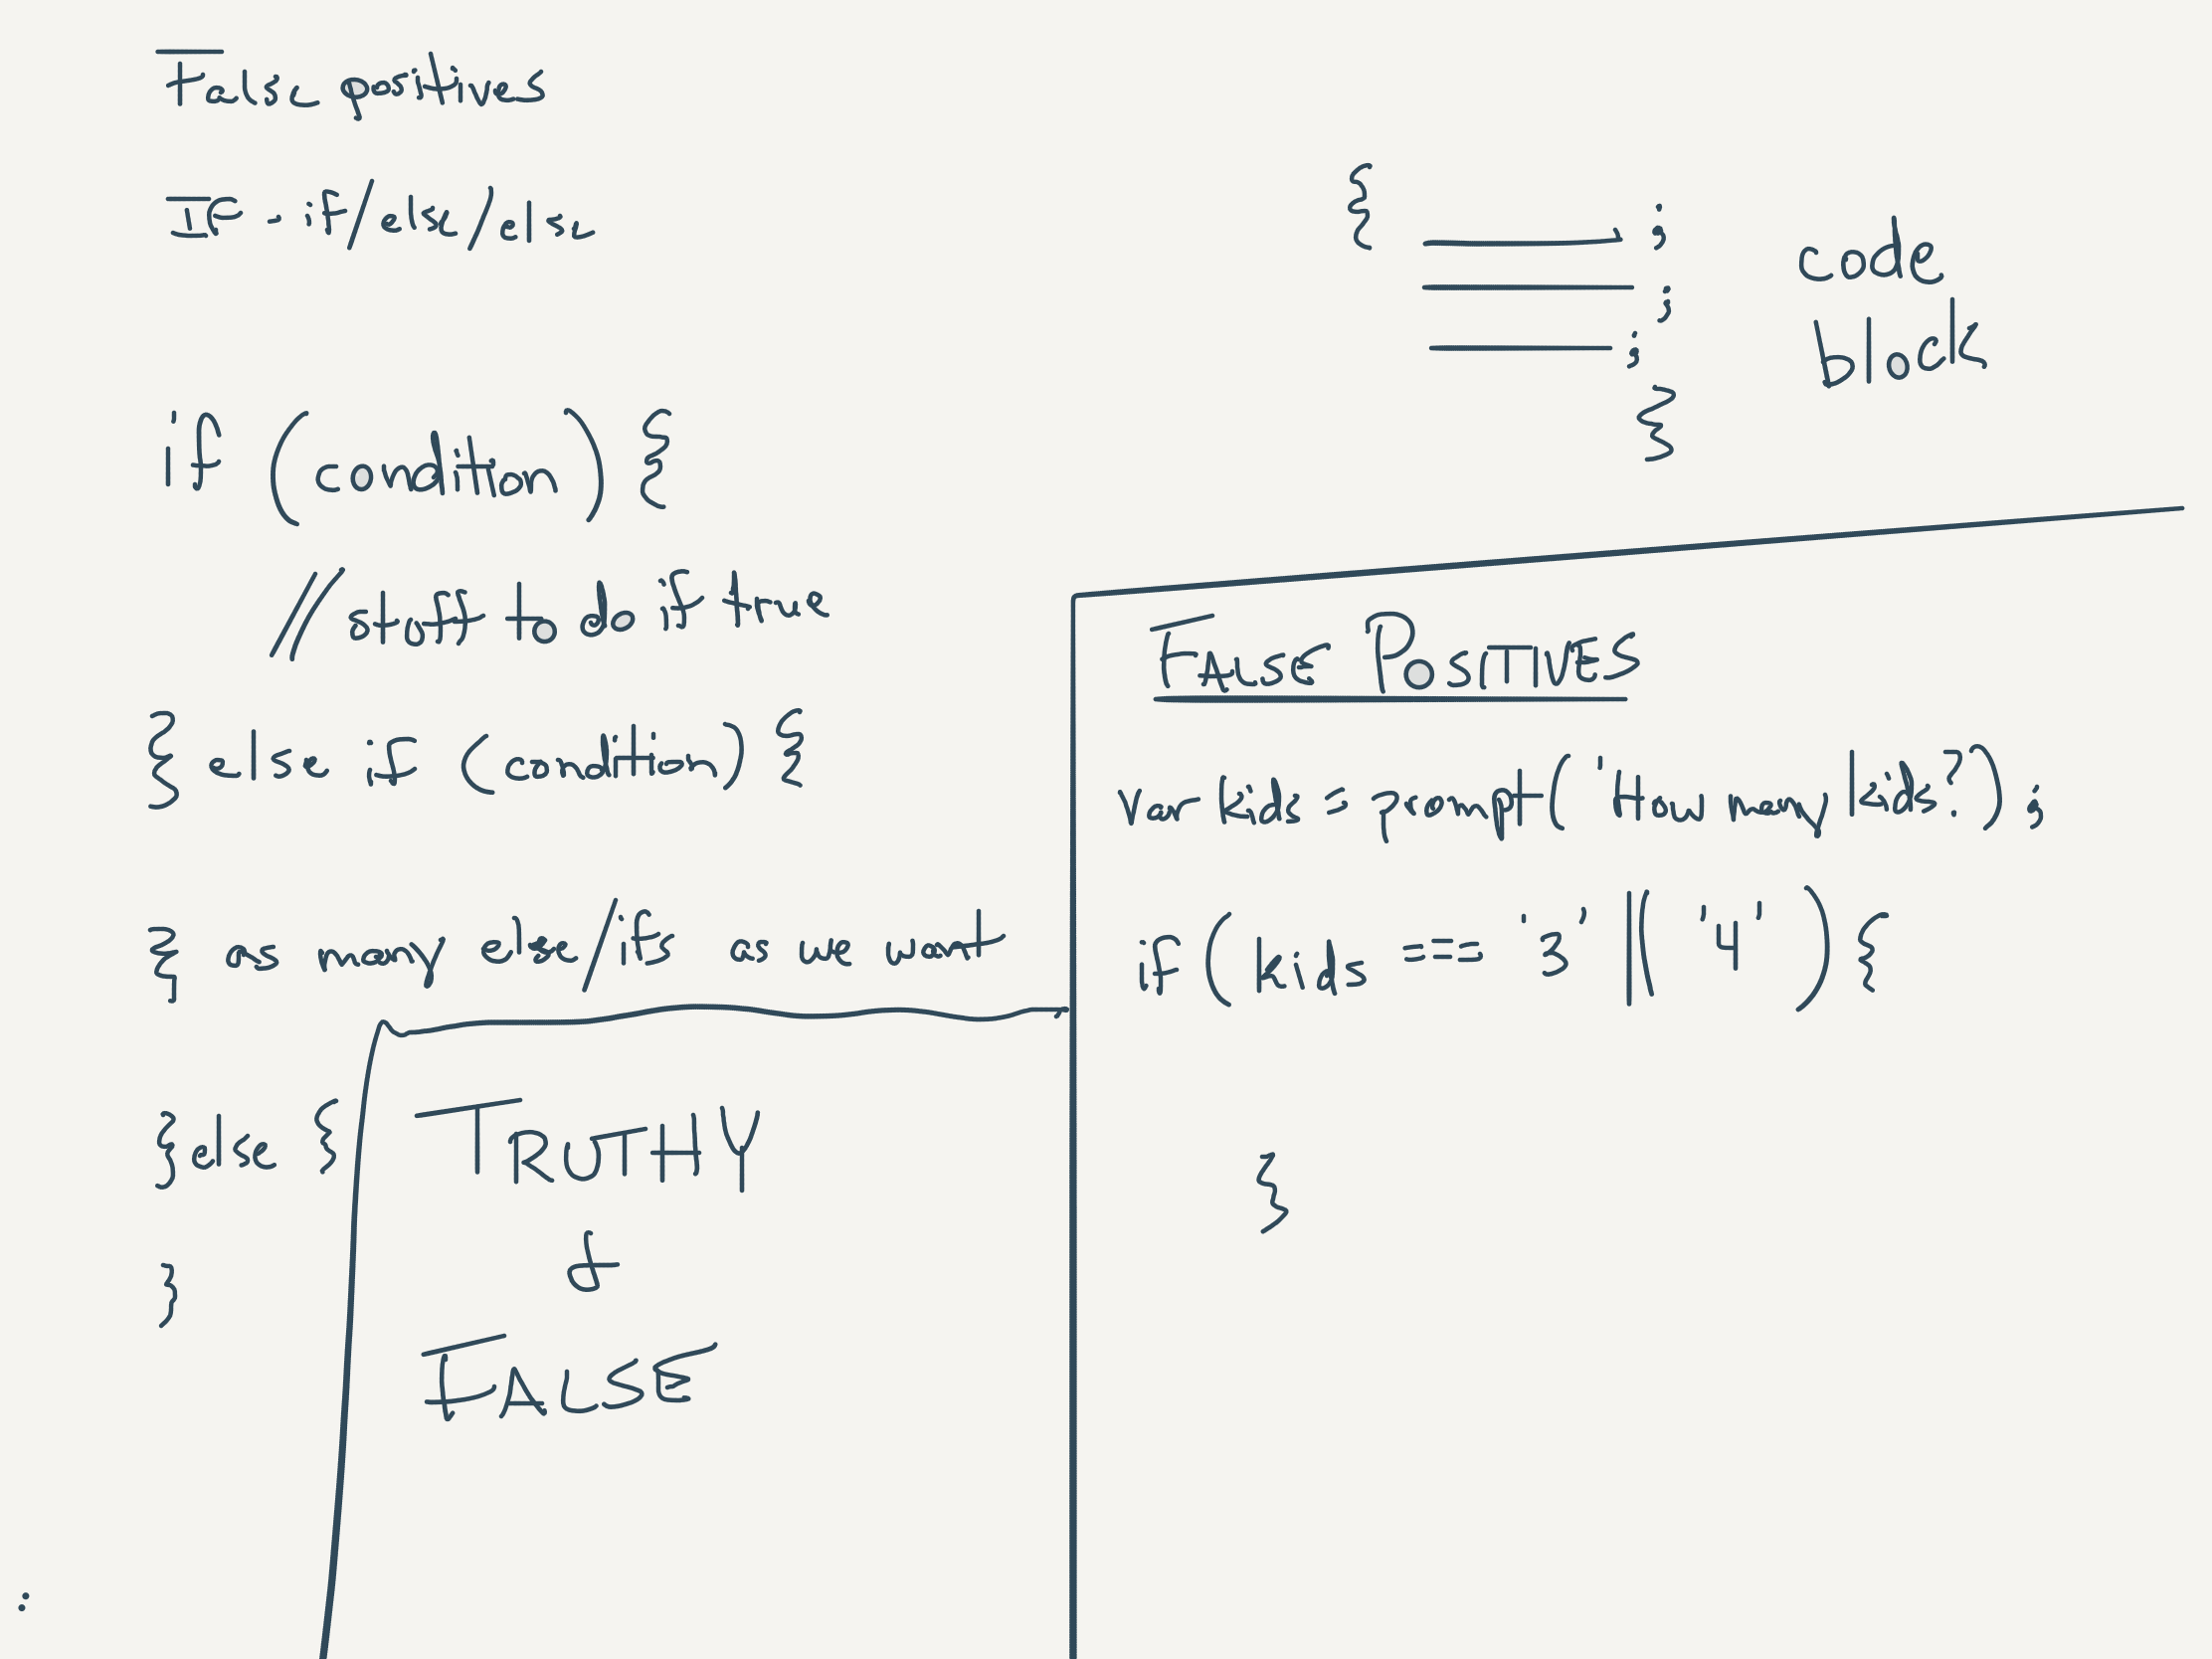 False positives
IF - if/else/else
{
;
;
;
}
code
block
if (condition) {
//stuff to do if true
} else if (condition) {
} as many else/ifs as we want
}else {
}
TRUTHY
&
FALSE
FALSE POSITIVES
var kids = prompt('How many kids?');
if (kids === '3' || '4') {
}